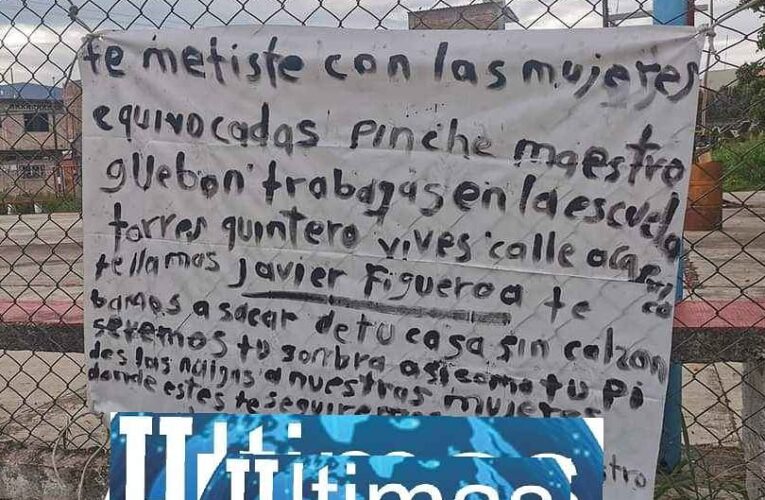 te metiste con las mujeres
equivocadas pinche maestro
guebon trabajas en la escuela
torres quintero vives calle
te llamas Javier Figueroa te
bamos a sacar de tu casa sin calzon
seremos tu sombra asi como tu pi
des las nalgas a nuestras mujeres
donde estes te seguiremos
tro
Ultimas